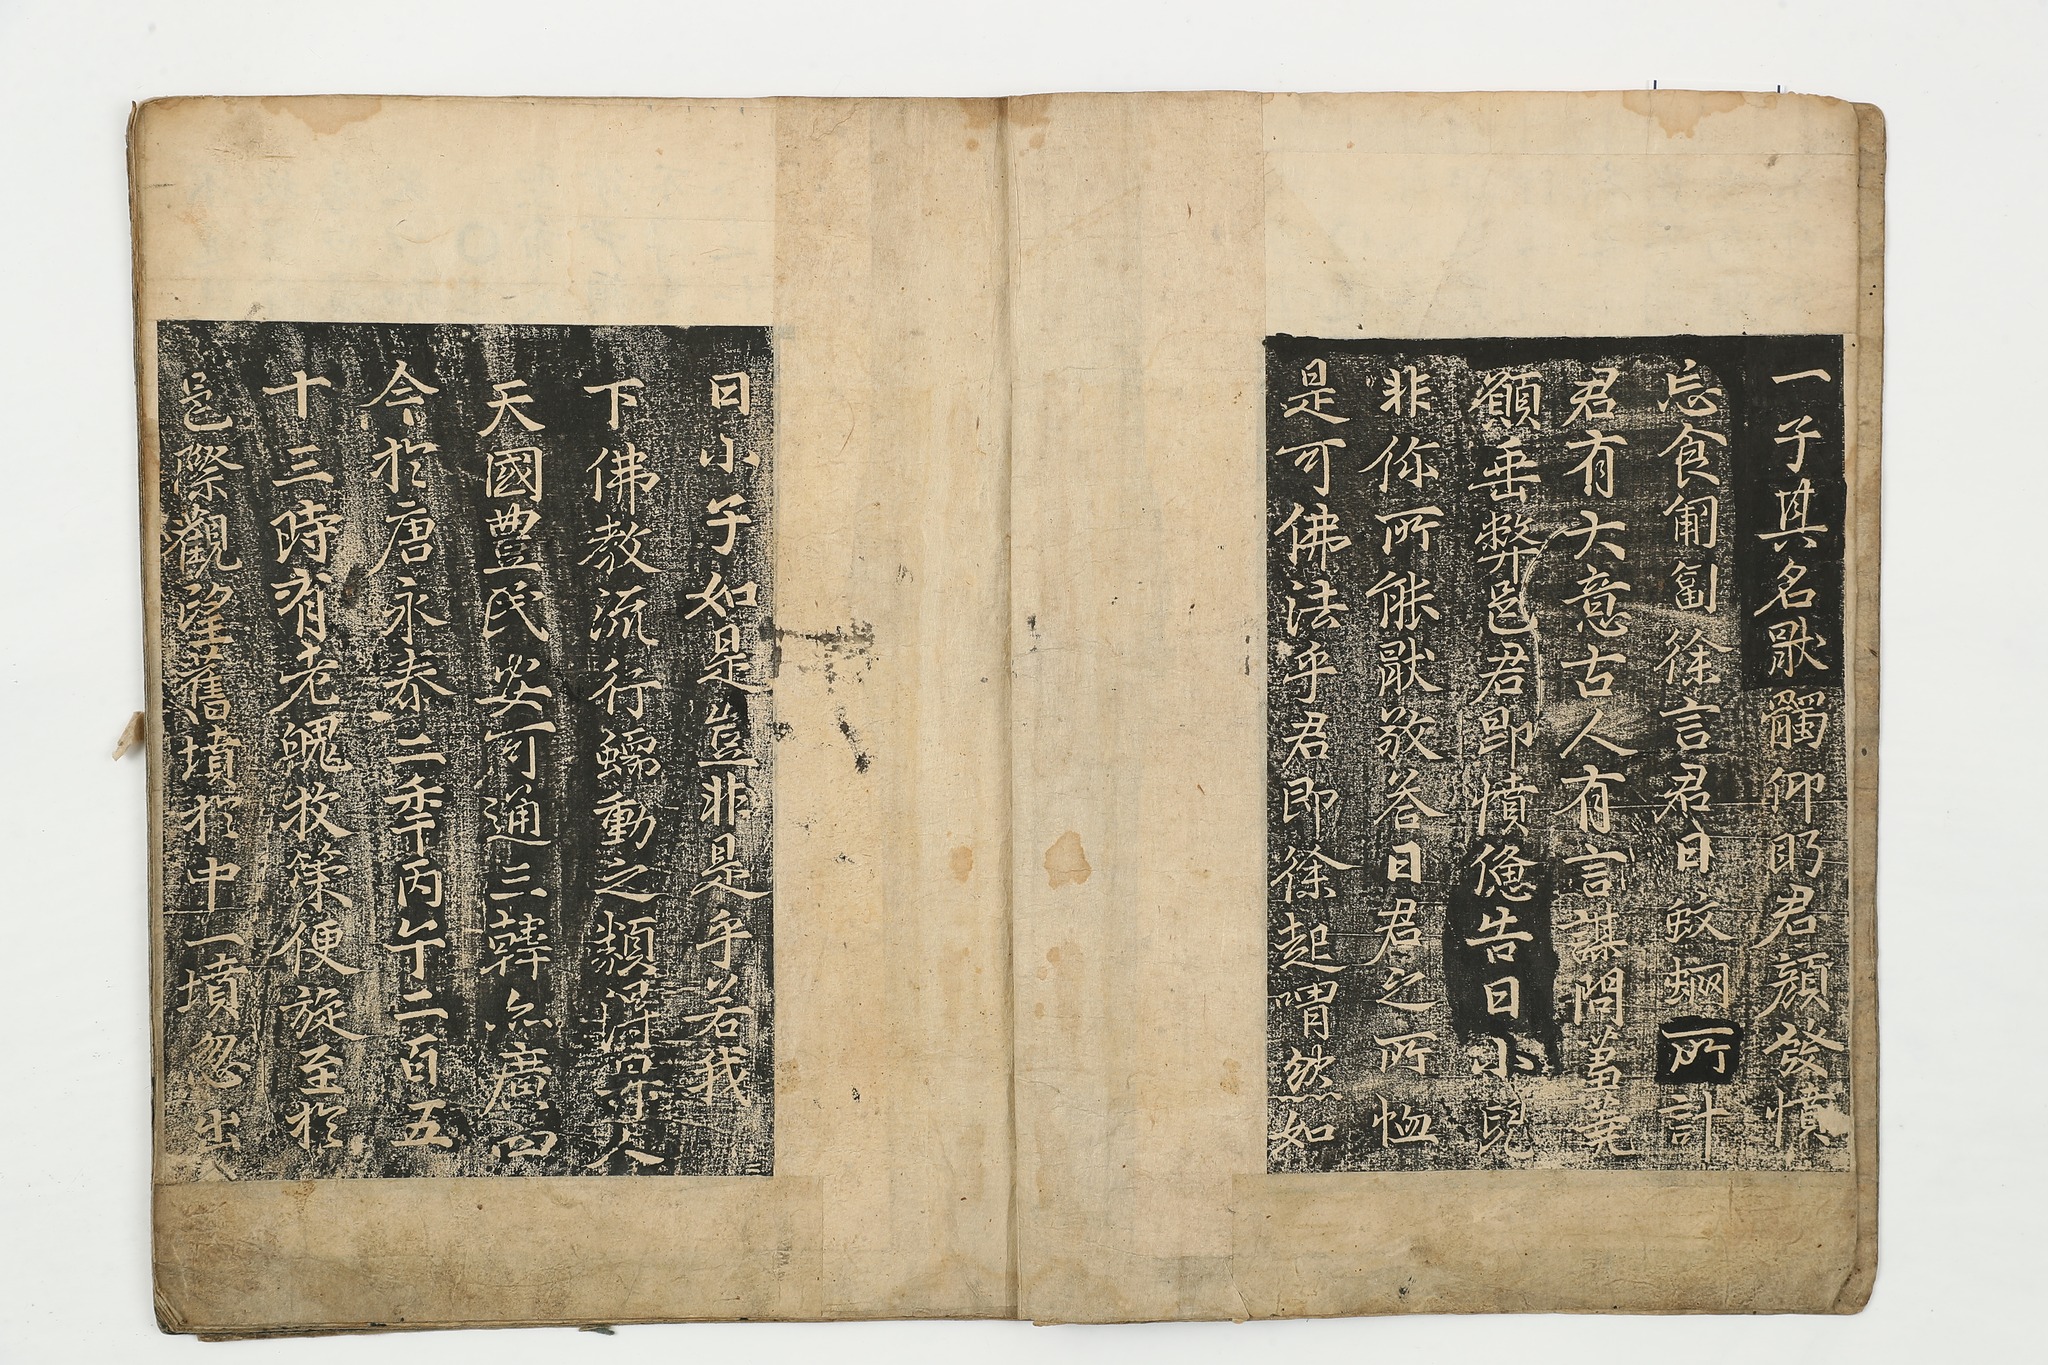 一子其名猒髑仰眄君顔發憤
忘食匍匐徐言君曰蚊蜹所計
君有大意古人有言謀問蒭蕘
願垂弊邑君即憤𢠢告曰小兒
非你所能猒敬答曰君之所恤
是可佛法乎君即徐起喟然如
曰小子如是豈非是乎若我
下佛教流行蠕動之類得求人
天國豊民安可通三韓亦廣四
今於唐永泰二秊丙午二百五
十三時有老魄杖策便旋至於
邑際觀望舊墳於中一墳忽出